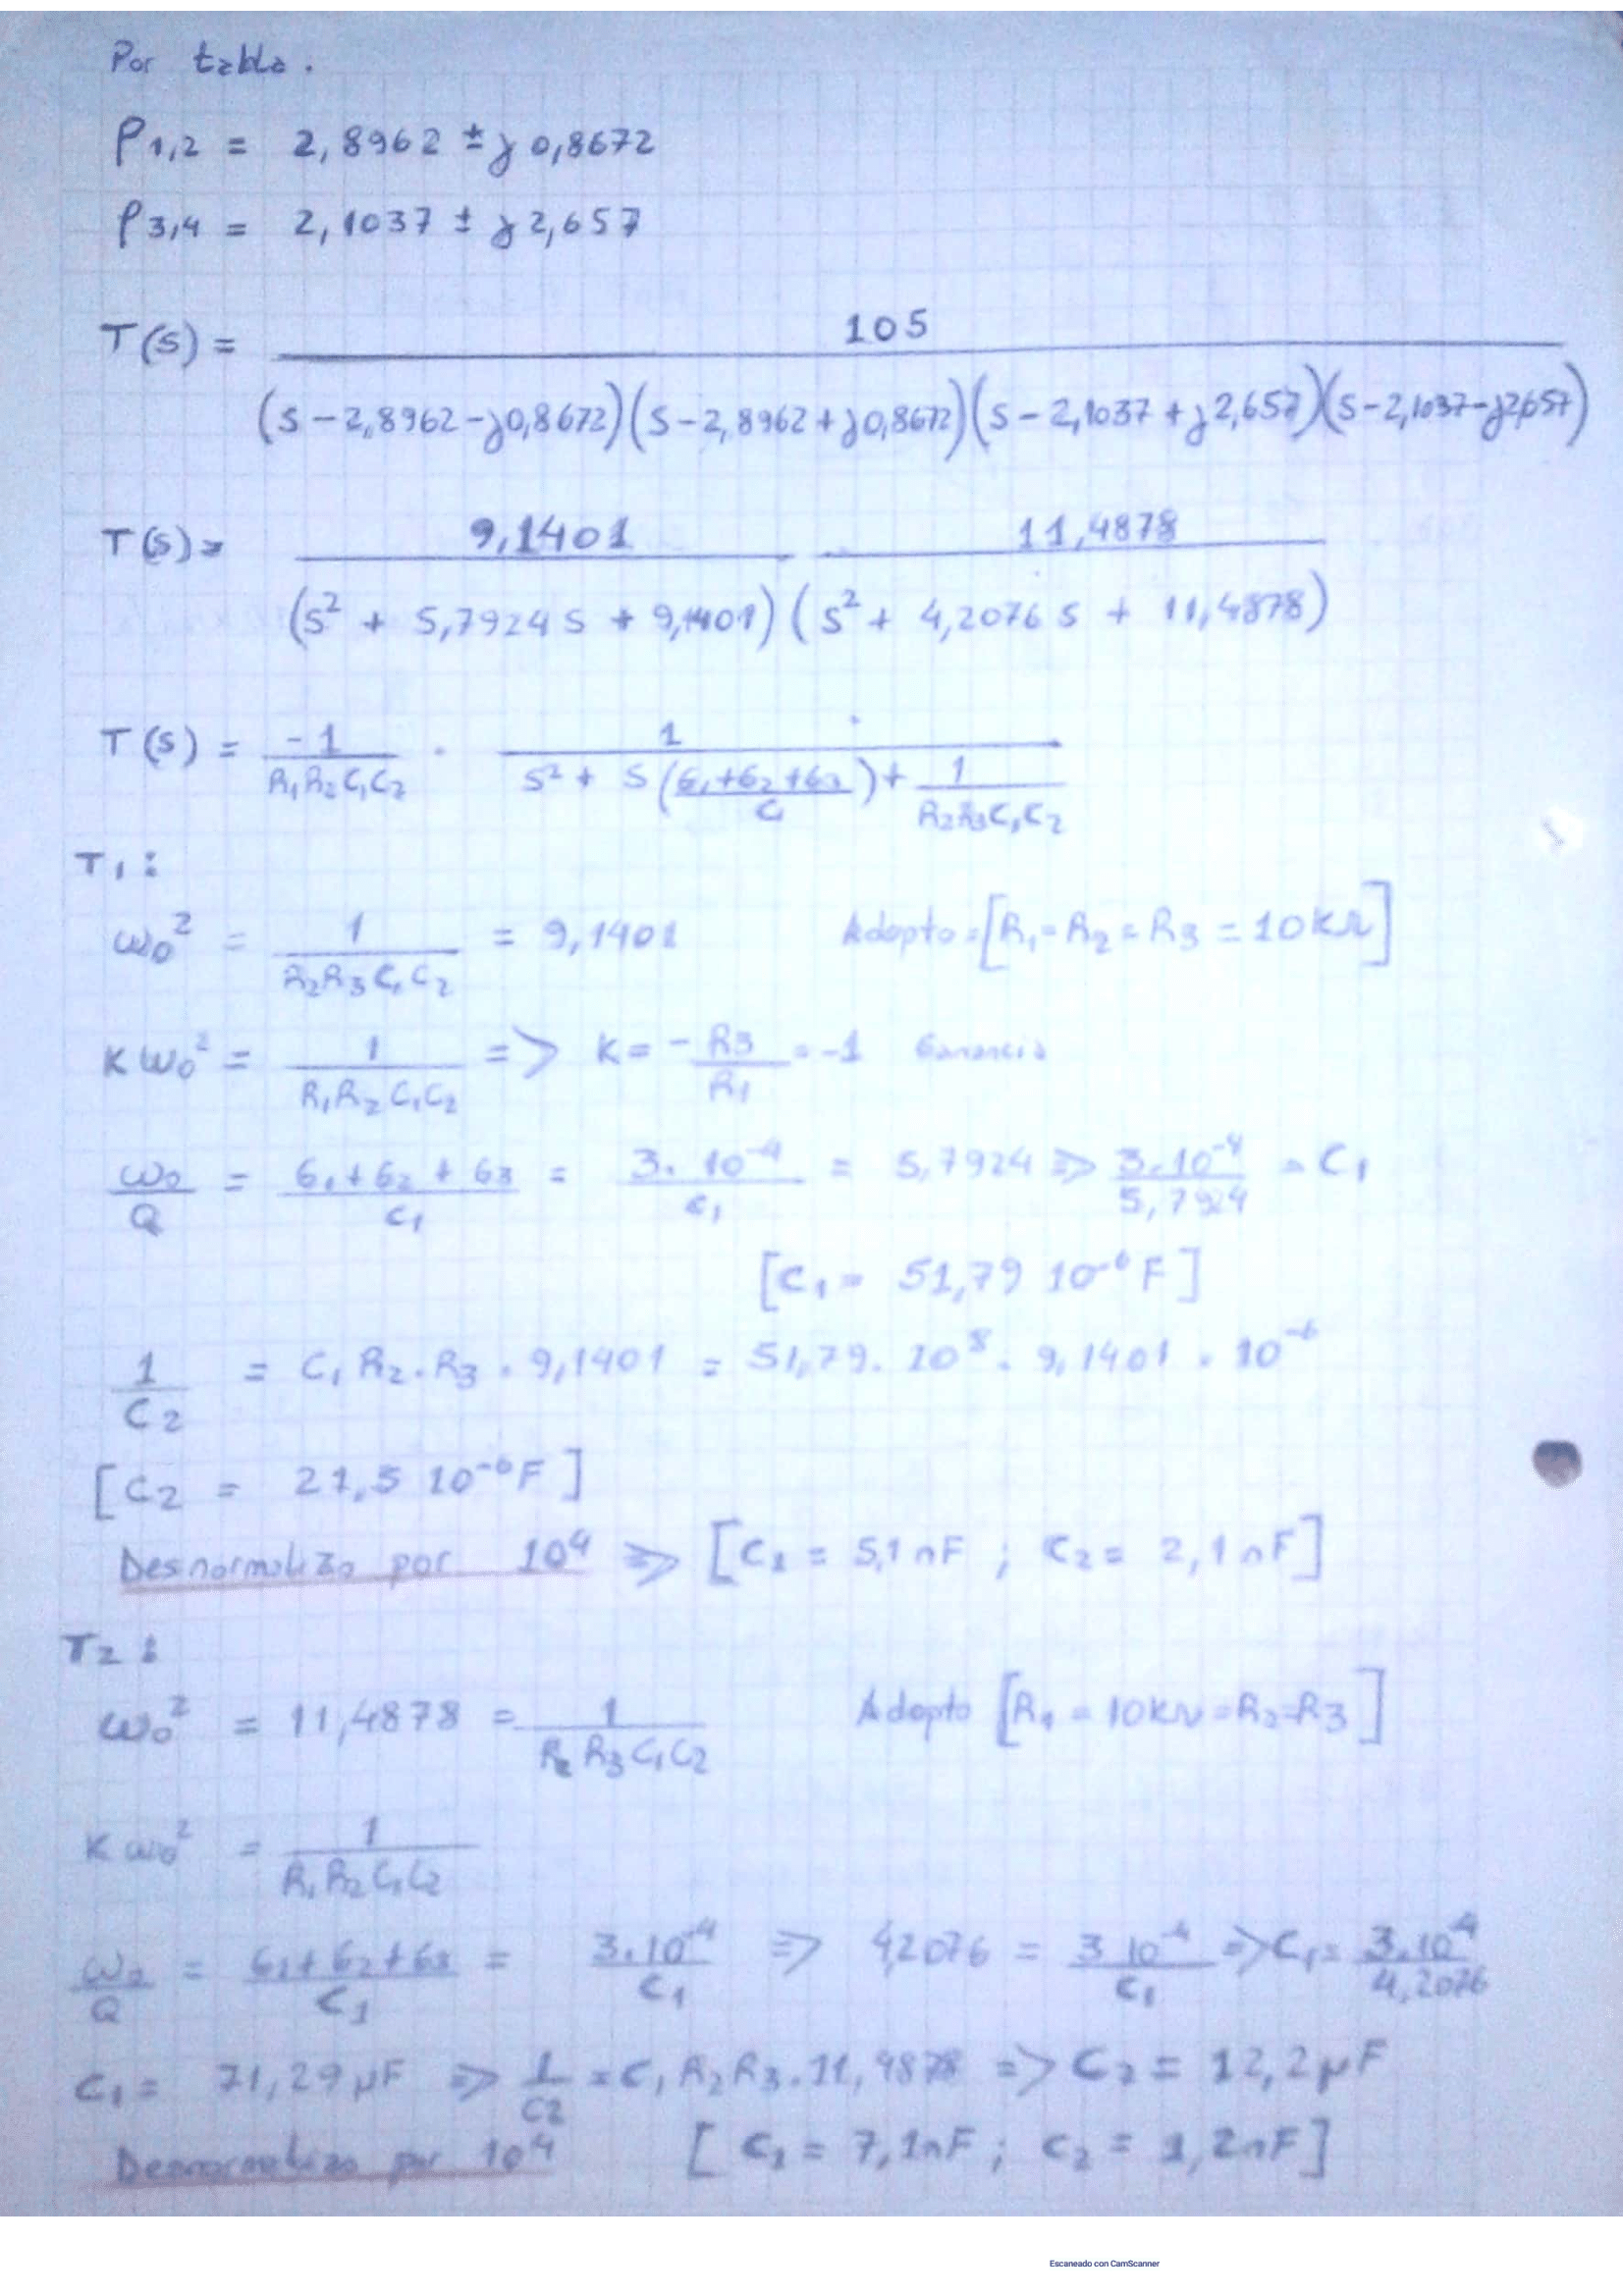 Por tabla.
P1,2 = 2,8962 ± j 0,8672
P3,4 = 2,1037 ± j 2,657
T(s) = 105 / (s - 2,8962 - j0,8672)(s - 2,8962 + j0,8672)(s - 2,1037 + j2,657)(s - 2,1037 - j2,657)
T(s) = 9,1401 / (s² + 5,7924 s + 9,1401) 11,4878 / (s² + 4,2076 s + 11,4878)
T(s) = -1 / R1R2C1C2 . 1 / s² + s (G1+G2+G3 / C1) + 1 / R2R3C1C2
T1:
ω0² = 1 / R2R3C1C2 = 9,1401 Adopto = [R1 = R2 = R3 = 10KΩ]
K ω0² = 1 / R1R2C1C2 => K = - R3 / R1 = -1 Ganancia
ω0 / Q = G1 + G2 + G3 / C1 = 3. 10⁻⁴ / C1 = 5,7924 => 3.10⁻⁴ / 5,7924 = C1
[C1 = 51,79 10⁻⁶ F]
1 / C2 = C1 R2 . R3 . 9,1401 = 51,79. 10⁸ . 9,1401 . 10⁻⁶
[C2 = 21,5 10⁻⁶ F]
Desnormalizo por 10⁴ => [C1 = 5,1 nF ; C2 = 2,1 nF]
T2:
ω0² = 11,4878 = 1 / R2 R3 C1C2 Adopto [R1 = 10KΩ = R2 = R3]
K ω0² = 1 / R1R2C1C2
ω0 / Q = G1+G2+G3 / C1 = 3.10⁻⁴ / C1 => 4,2076 = 3 10⁻⁴ / C1 => C1 = 3.10⁻⁴ / 4,2076
C1 = 71,29 µF => 1 / C2 = C1 R2 R3 . 11,4878 => C2 = 12,2 µF
Desnormalizo por 10⁴ [C1 = 7,1nF ; C2 = 1,2nF]
Escaneado con CamScanner